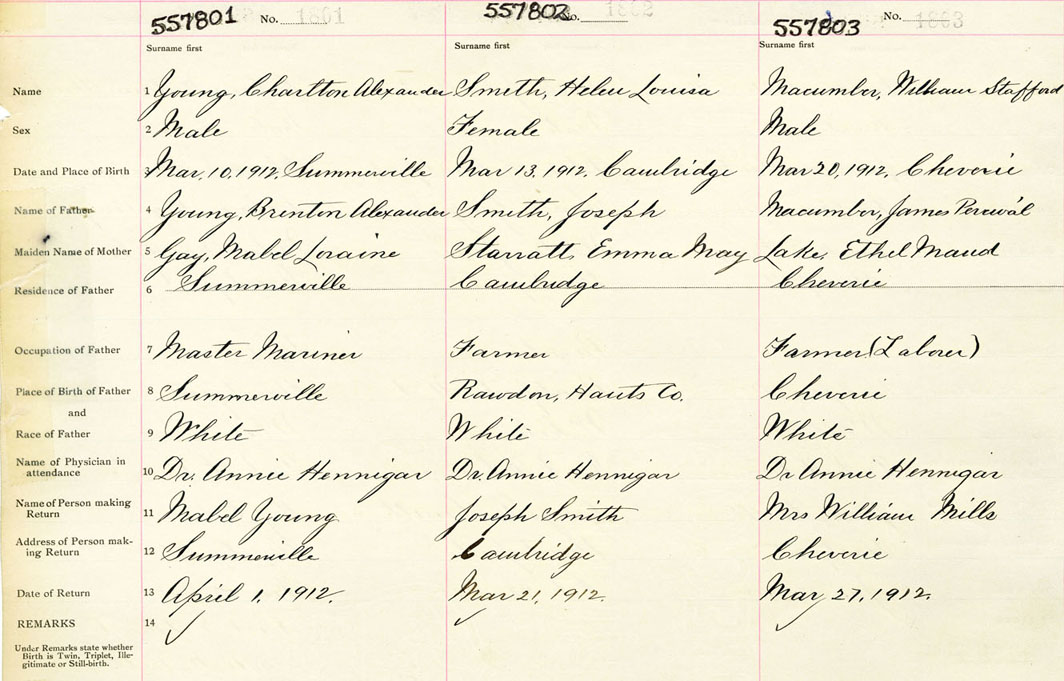 557801 No. 1801 557802 No. 1802 557803 No. 1803
Surname first Surname first Surname first
Name 1 Young, Charlton Alexander Smith, Helen Louisa Macumber, William Stafford
Sex 2 Male Female Male
Date and Place of Birth 3 Mar. 10, 1912, Summerville Mar 13, 1912, Cambridge Mar 20, 1912, Cheverie
Name of Father 4 Young, Brenton Alexander Smith, Joseph Macumber, James Percival
Maiden Name of Mother 5 Gay, Mabel Loraine Starratt, Emma May Lake, Ethel Maud
Residence of Father 6 Summerville Cambridge Cheverie
Occupation of Father 7 Master Mariner Farmer Farmer (Laborer)
Place of Birth of Father 8 Summerville Rawdon, Hants Co. Cheverie
and
Race of Father 9 White White White
Name of Physician in
attendance 10 Dr. Annie Hennigar Dr. Annie Hennigar Dr Annie Hennigar
Name of Person making
Return 11 Mabel Young Joseph Smith Mrs William Mills
Address of Person mak-
ing Return 12 Summerville Cambridge Cheverie
Date of Return 13 April 1, 1912. Mar 21, 1912. Mar 27, 1912.
REMARKS 14
Under Remarks state whether
Birth is Twin, Triplet, Ille-
gitimate or Still-birth.